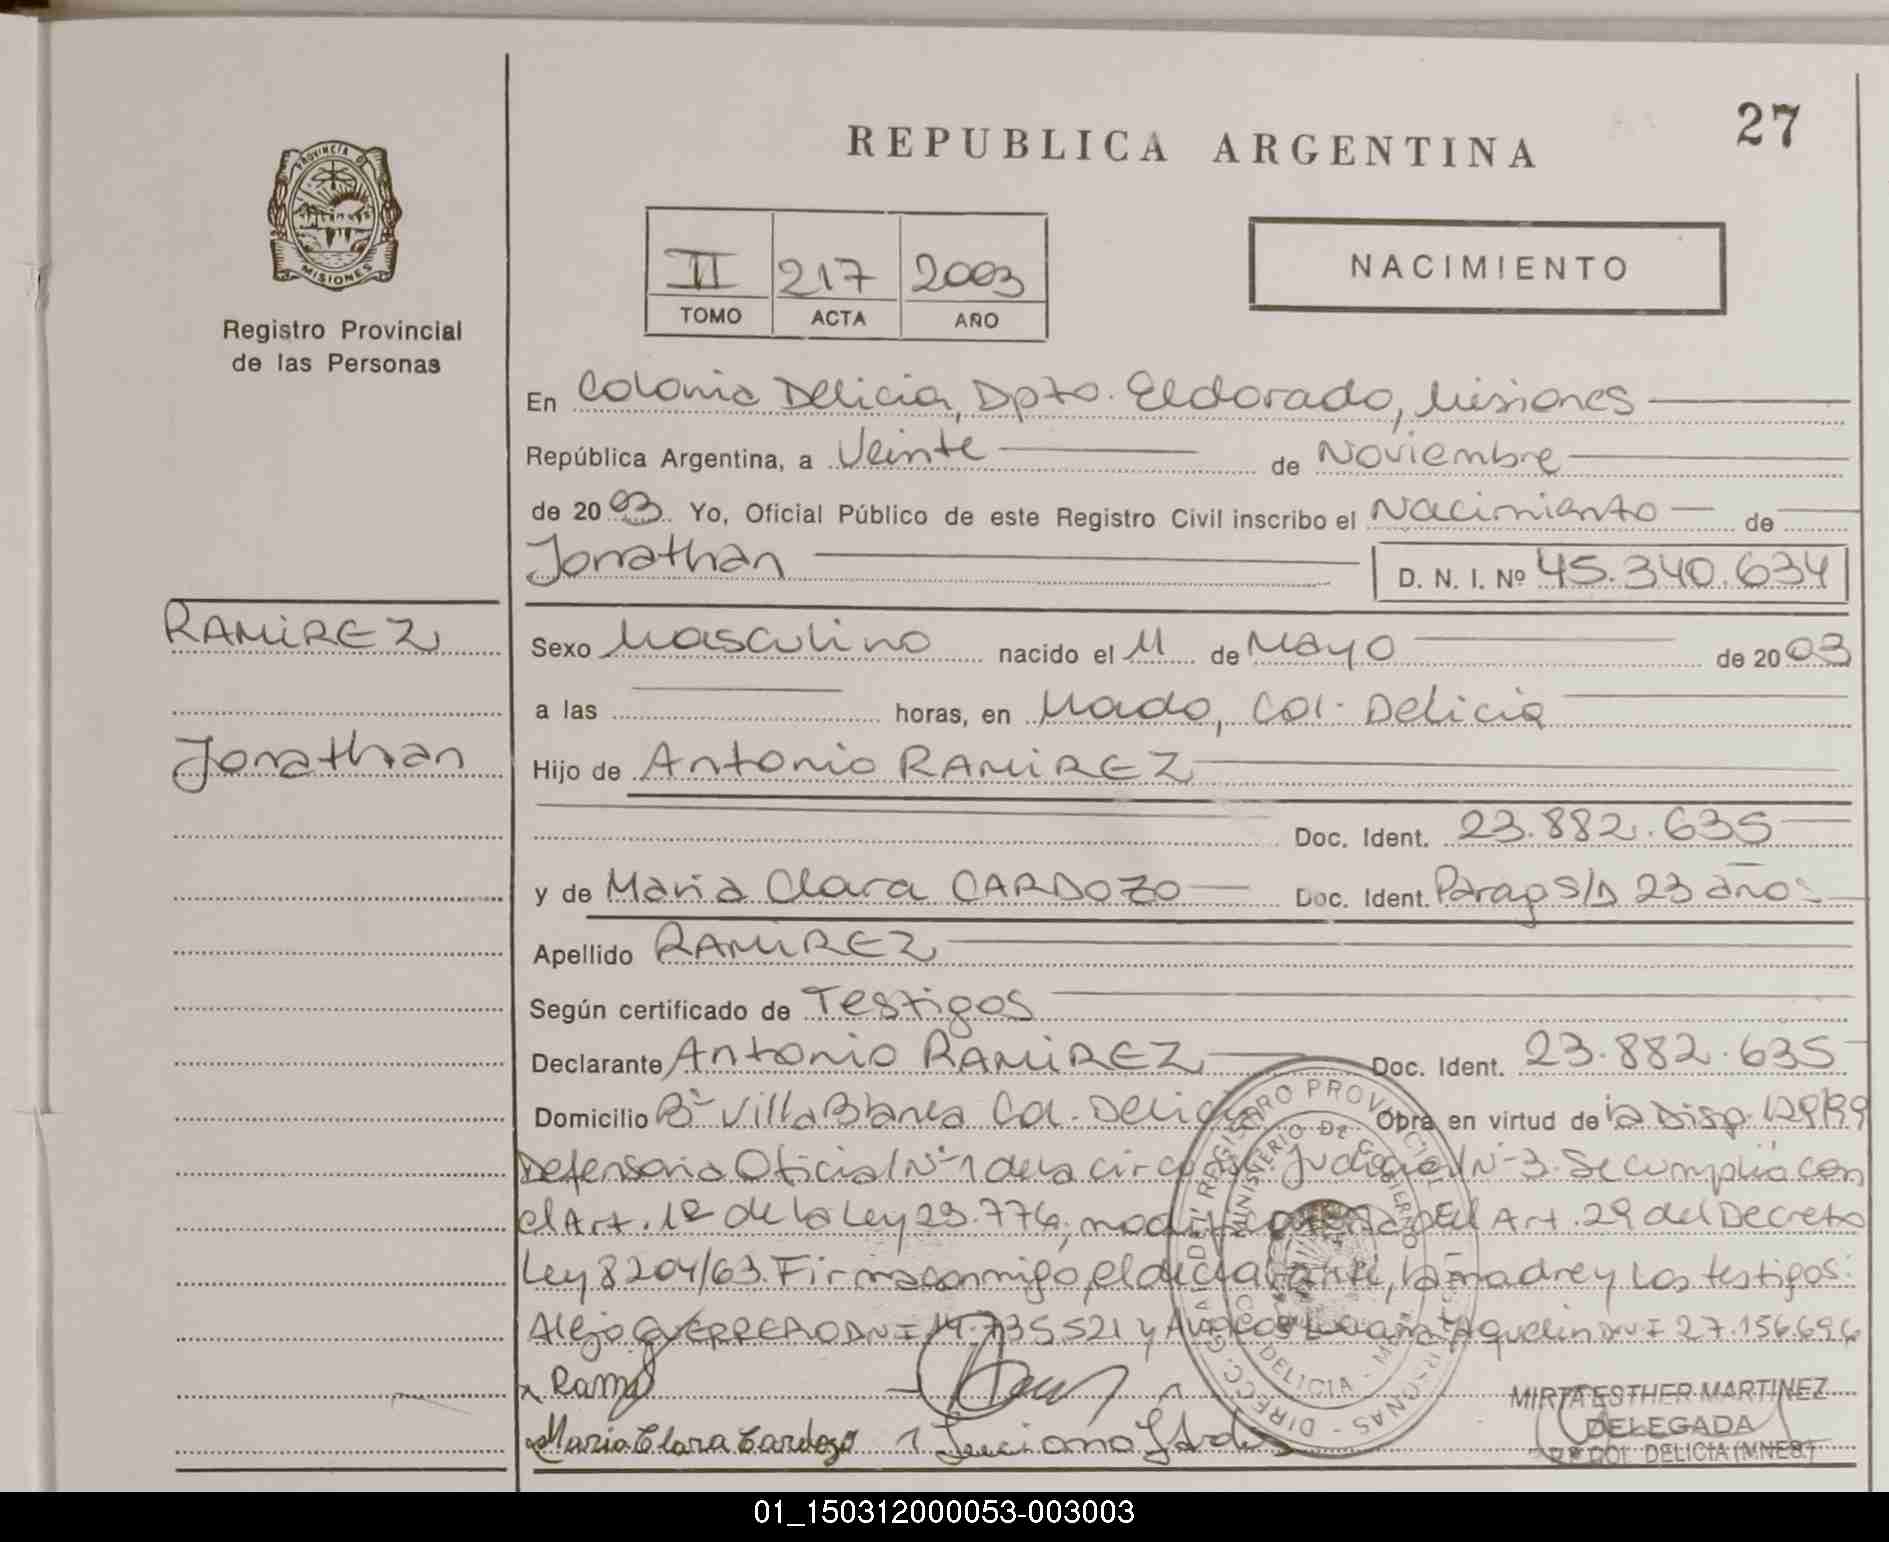 REPUBLICA ARGENTINA
27
PROVINCIA DE
MISIONES
Registro Provincial
de las Personas
II 217 2003
TOMO ACTA AÑO
NACIMIENTO
En Colonia Delicia, Dpto. Eldorado, Misiones
República Argentina, a Veinte de Noviembre
de 2003 Yo, Oficial Público de este Registro Civil inscribo el Nacimiento de
Jonathan D. N. I. Nº 45.340.634
RAMIREZ
Jonathan
Sexo Masculino nacido el 11 de Mayo de 2003
a las horas, en Mado, Col. Delicia
Hijo de Antonio RAMIREZ
Doc. Ident. 23.882.635
y de Maria Clara CARDOZO Doc. Ident. Parag S/D 23 años
Apellido RAMIREZ
Según certificado de Testigos
Declarante Antonio RAMIREZ Doc. Ident. 23.882.635
Domicilio Bº Villa Blanca Col. Delicia Obra en virtud de la Disp. 129/99
Defensoria Oficial Nº 1 de la circ. Judicial Nº 3. Se cumplió con
el Art. 1º de la Ley 23.776, modif. del Art. 29 del Decreto
Ley 8204/63. Firma conmigo, el declarante, la madre y los testigos:
Alejo GUERRERO DNI 14.735.521 y Aquelin DNI 27.156.696
Maria Clara Cardozo Luciano
DIRECC. GRAL. DEL REGISTRO PROVINCIAL DE LAS PERSONAS
MINISTERIO DE GOBIERNO
DELICIA
MIRTA ESTHER MARTINEZ
DELEGADA
R.P. COL. DELICIA (MNES.)
01_150312000053-003003